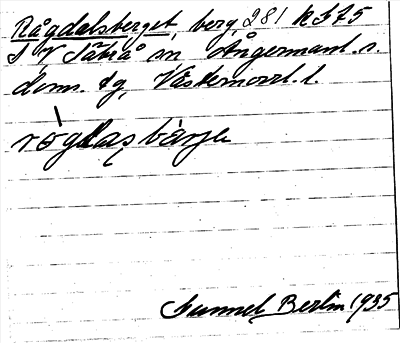 Rågdalsberget, berg, 281 R 575
S V Täbrå sn Ångermanl. s.
doms. fg, Västernorrl. l.
rogdasbärje
Gunnel Berlin 1935